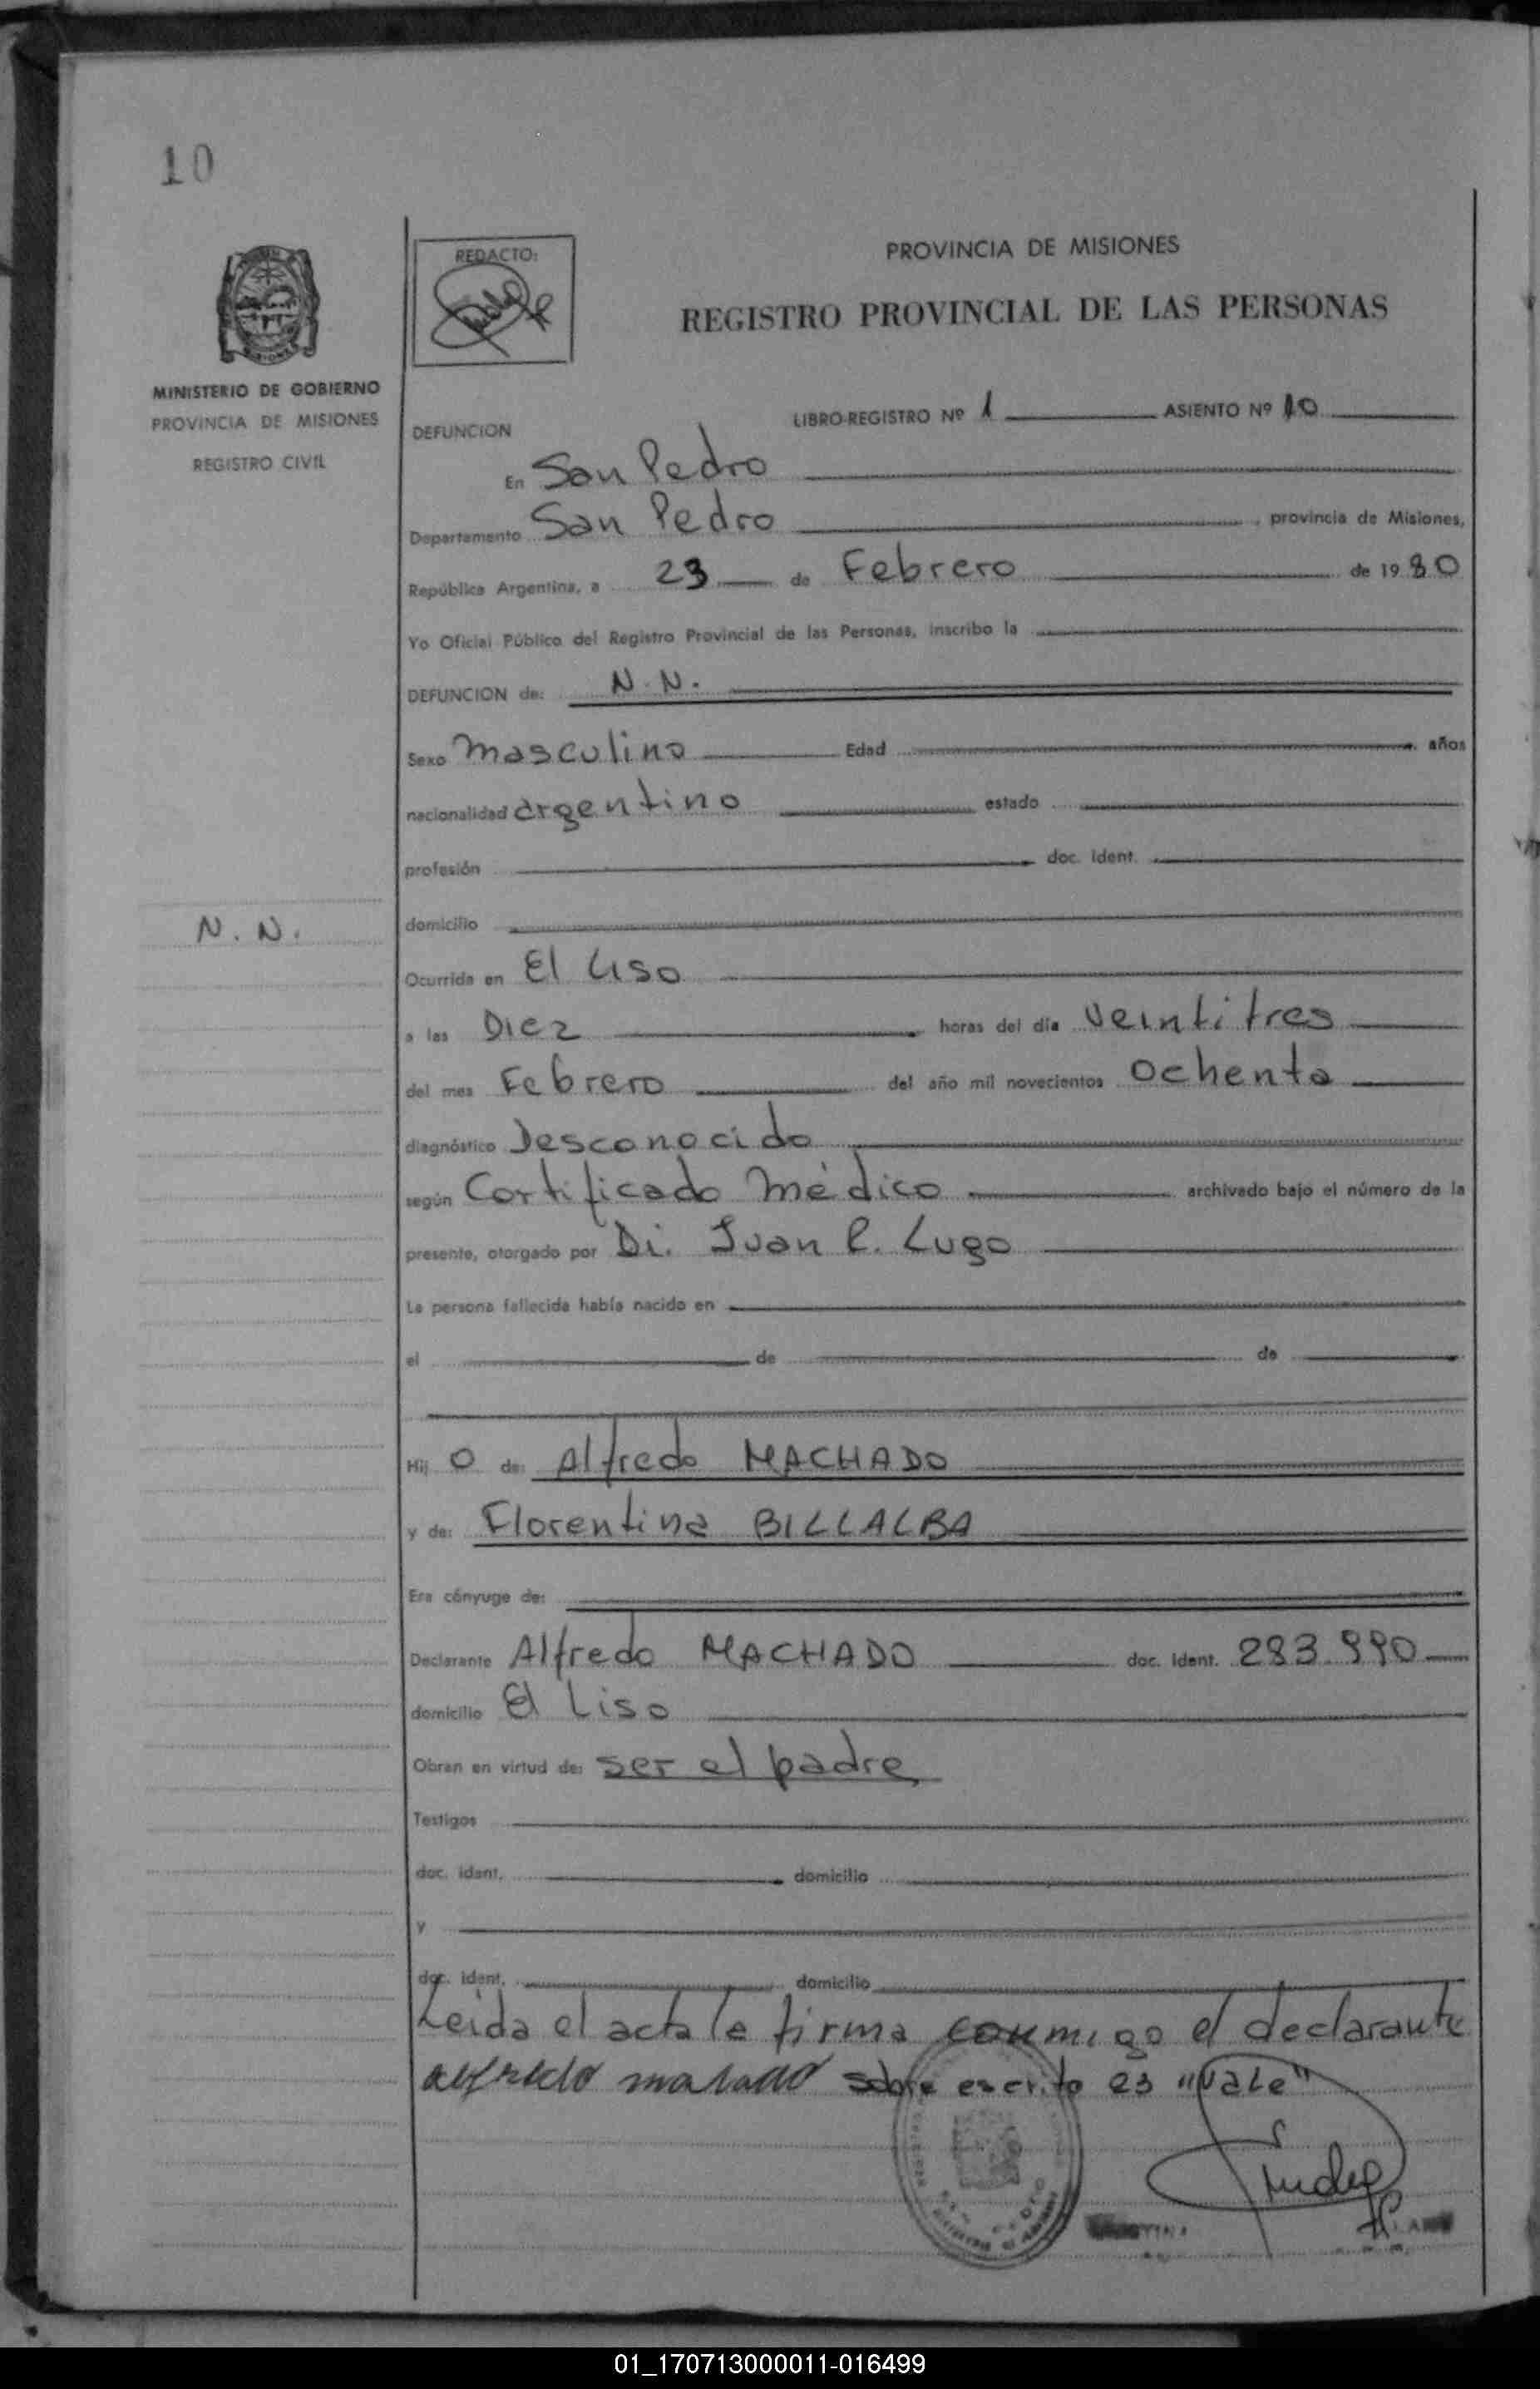 10
MINISTERIO DE GOBIERNO
PROVINCIA DE MISIONES
REGISTRO CIVIL
N. N.
REDACTO:
PROVINCIA DE MISIONES
REGISTRO PROVINCIAL DE LAS PERSONAS
LIBRO-REGISTRO Nº 1 ASIENTO Nº 10
DEFUNCION
En San Pedro
Departamento San Pedro, provincia de Misiones,
República Argentina, a 23 de Febrero de 1980
Yo Oficial Público del Registro Provincial de las Personas, inscribo la
DEFUNCION de: N. N.
Sexo Masculino Edad años
nacionalidad argentino estado
profesión doc. ident.
domicilio
Ocurrida en El Liso
a las Diez horas del día Veintitres
del mes Febrero del año mil novecientos Ochenta
diagnóstico Desconocido
según Certificado Médico archivado bajo el número de la
presente, otorgado por Dr. Juan C. Lugo
La persona fallecida había nacido en
el de de
Hij o de: Alfredo MACHADO
y de: Florentina BILLALBA
Era cónyuge de:
Declarante Alfredo MACHADO doc. ident. 283.990
domicilio El Liso
Obran en virtud de: ser el padre
Testigos
doc. ident. domicilio
y
doc. ident. domicilio
Leida el acta la firma conmigo el declarante
sobre escrito 23 "Vale"
01_170713000011-016499